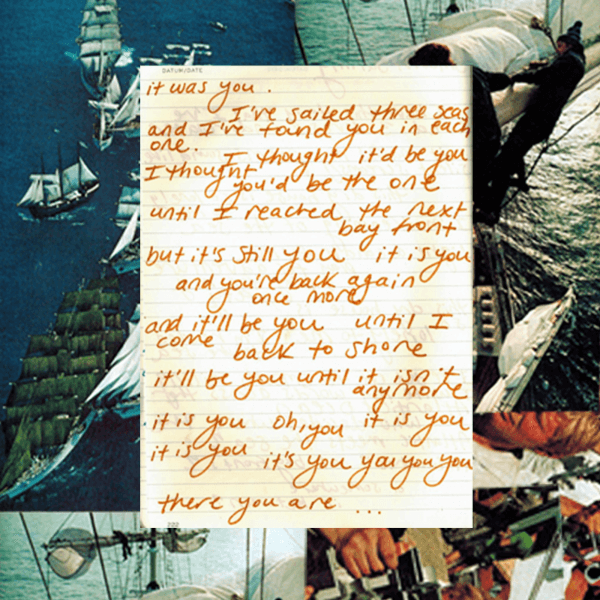 DATUM/DATE
it was you.
I've sailed three seas
and I've found you in each
one.
I thought it'd be you
I thought
you'd be the one
until I reached the next
bay front
but it's still you it is you
and you're back again
once more
and it'll be you until I
come
back to shore
it'll be you until it isn't
anymore
it is you oh, you it is you
it is you
it's you you you you
there you are ...
222